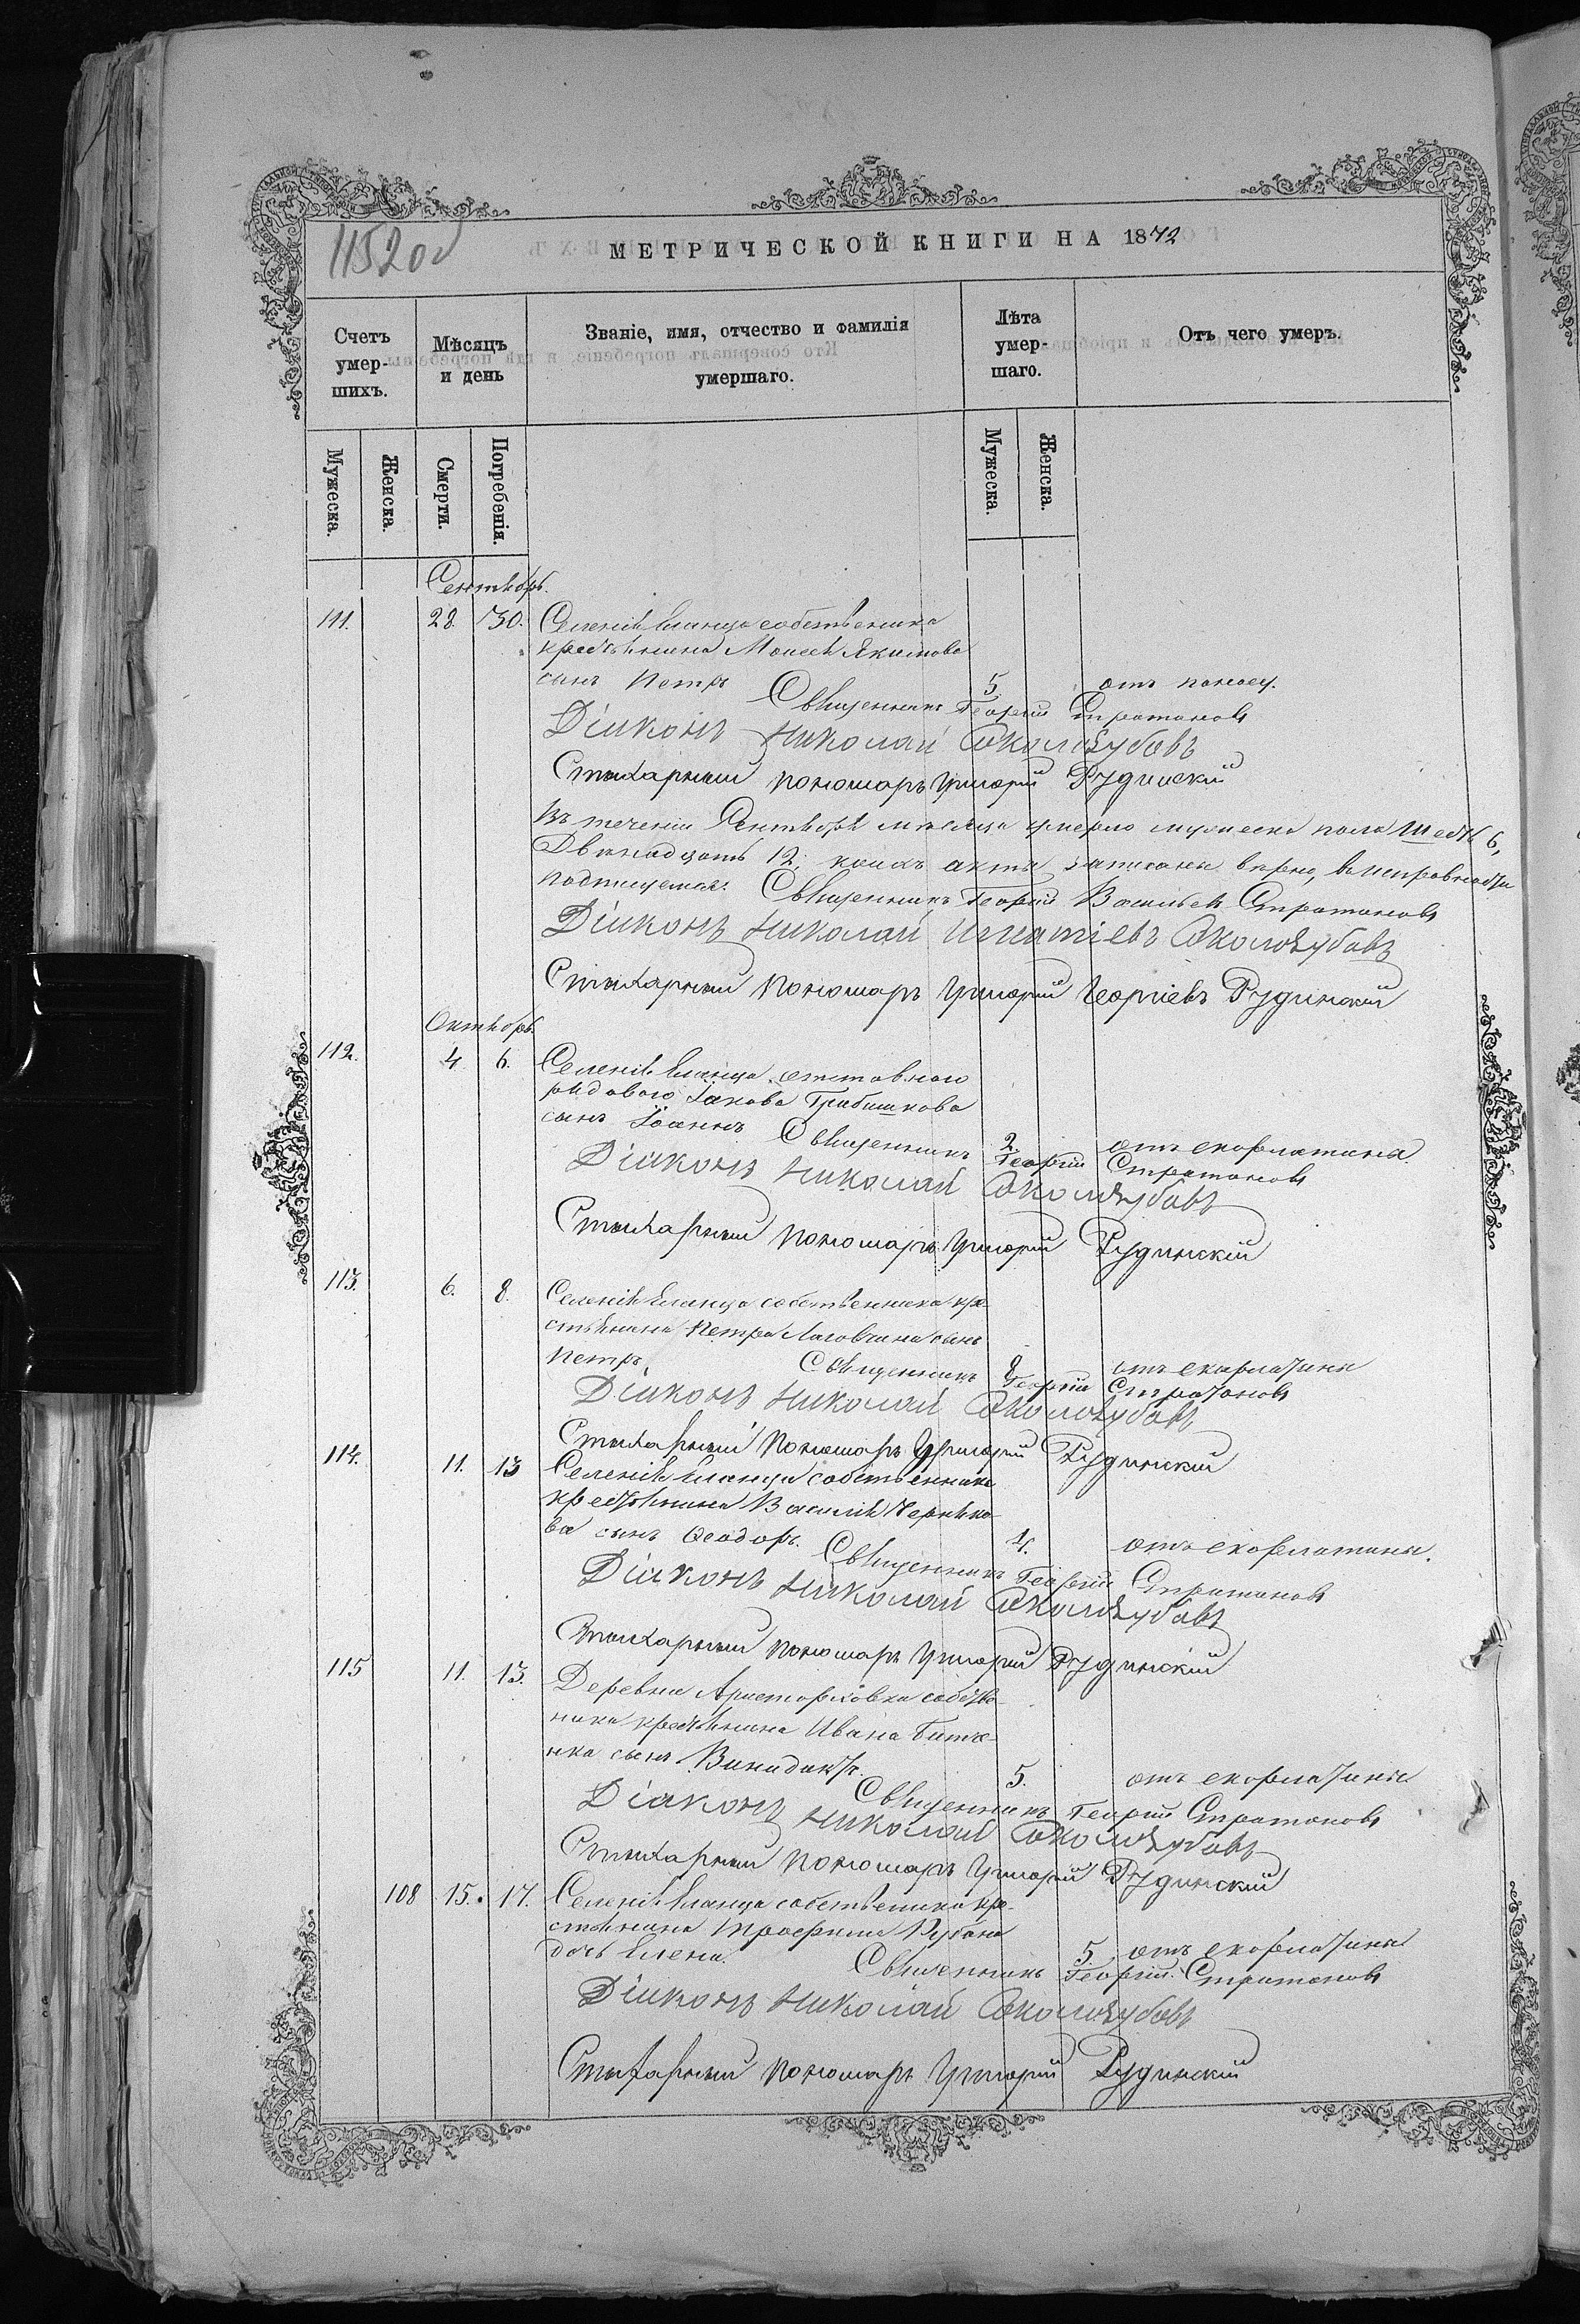 1152 об
МЕТРИЧЕСКОЙ КНИГИ НА 1872
Счетъ умер-шихъ.
Мѣсяцъ и день
Званіе, имя, отчество и фамилія умершаго.
Лѣта умер-шаго.
Отъ чего умеръ.
Мужеска.
Женска.
Смерти.
Погребенія.
Мужеска.
Женска.
Сентябрь.
111. 28. 30. Селенія Еланца собственника
крестьянина Моисея Якимова
сынъ Петръ 5 отъ поносу.
Священникъ Георгій Стратоновъ
Діаконъ Николай Соколозубовъ
Стихарный пономарь Григорій Рудинскій
Въ теченіи Сентября мѣсяца умерло мужеска пола 6,
Двѣнадцать 12; коихъ акты записаны вѣрно, въ исправности
подписуемся. Священникъ Георгій Васильевъ Стратоновъ
Діаконъ Николай Игнатіевъ Соколозубовъ
Стихарный пономарь Григорій Георгіевъ Рудинскій
Октябрь
112. 4 6. Селенія Еланца отставного
рядового Іакова Грабишкова
сынъ Іоаннъ 2. отъ скорлатина.
Священникъ Георгій Стратоновъ
Діаконъ Николай Соколозубовъ
Стихарный пономарь Григорій Рудинскій
113. 6. 8. Селенія Еланца собственника кре-
стьянина Петра сынъ
Петръ. 8 отъ скарлатины
Священникъ Георгій Стратоновъ
Діаконъ Николай Соколозубовъ
Стихарный пономарь Григорій Рудинскій
114. 11. 13 Селенія Еланца собственника
крестьянина Василія Черняко-
ва сынъ Ѳеодоръ. 4. отъ скорлатины.
Священникъ Георгій Стратоновъ
Діаконъ Николай Соколозубовъ
Стихарный пономарь Григорій Рудинскій
115 11. 13. Деревни собстве-
ника крестьянина Ивана
сынъ 5. отъ скорлатины
Священникъ Георгій Стратоновъ
Діаконъ Николай Соколозубовъ
Стихарный пономарь Григорій Рудинскій
108 15. 17. Селенія Еланца собственника кре-
стьянина Трофима Рубана
дочь Елена. 5. отъ скорлатины
Священникъ Георгій Стратоновъ
Діаконъ Николай Соколозубовъ
Стихарный пономарь Григорій Рудинскій